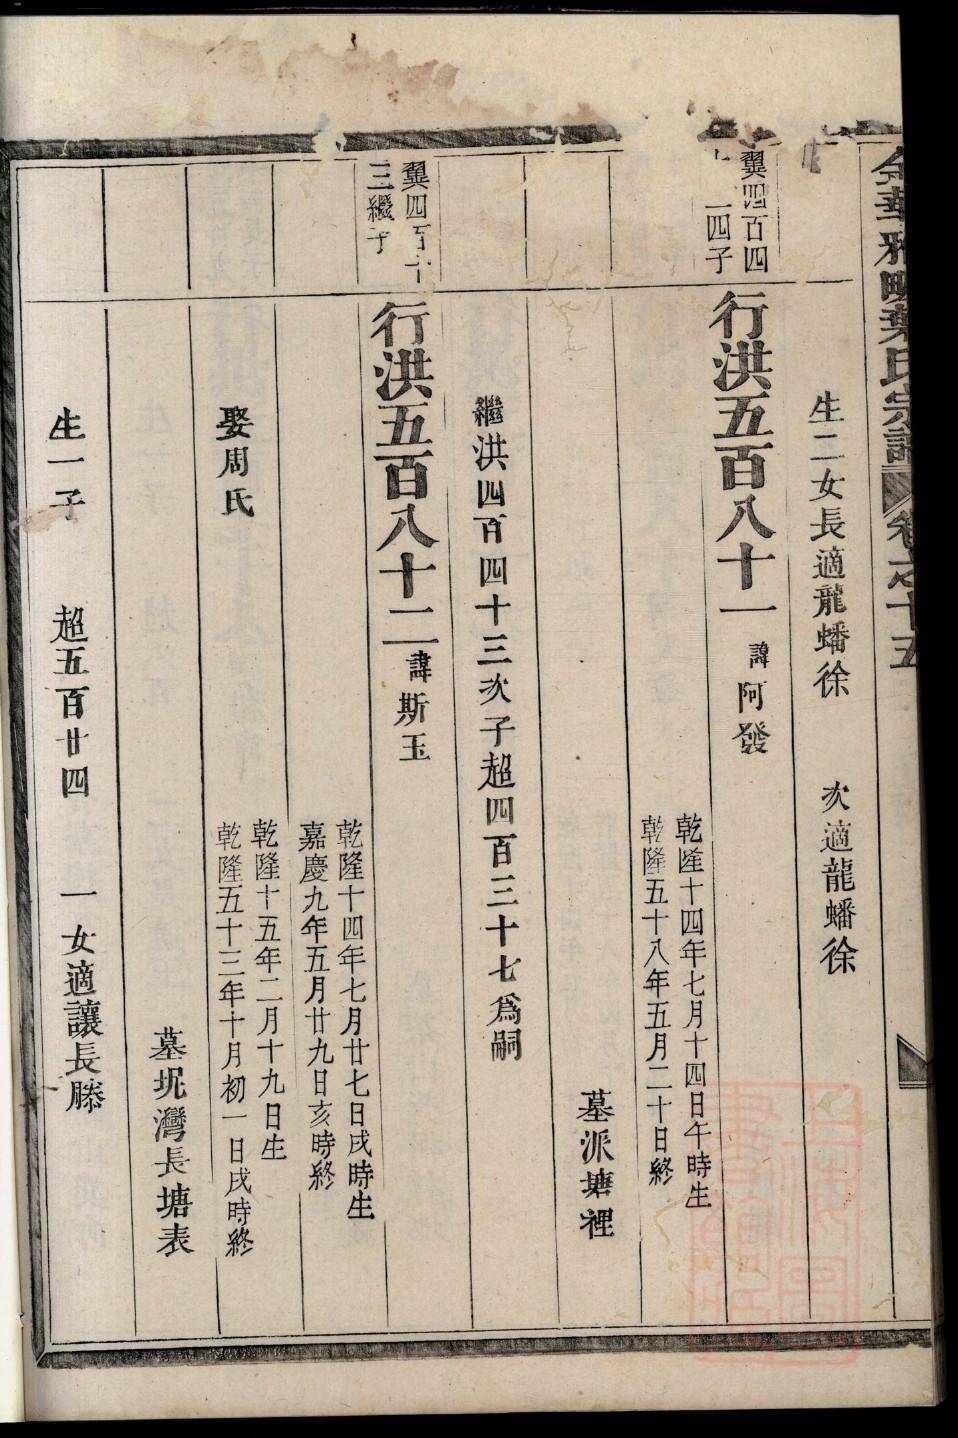 金華雅畈葉氏宗譜 卷之十五
生二女長適龍蟠徐 次適龍蟠徐
翼四百四
一四子
行洪五百八十一 諱阿發
乾隆十四年七月十四日午時生
乾隆五十八年五月二十日終
墓派塘裡
繼洪四百四十三次子超四百三十七爲嗣
翼四百十
三繼子
行洪五百八十二 諱斯玉
乾隆十四年七月廿七日戌時生
嘉慶九年五月廿九日亥時終
娶周氏
乾隆十五年二月十九日生
乾隆五十三年十月初一日戌時終
墓坭灣長塘表
生一子 超五百廿四 一女適讓長滕